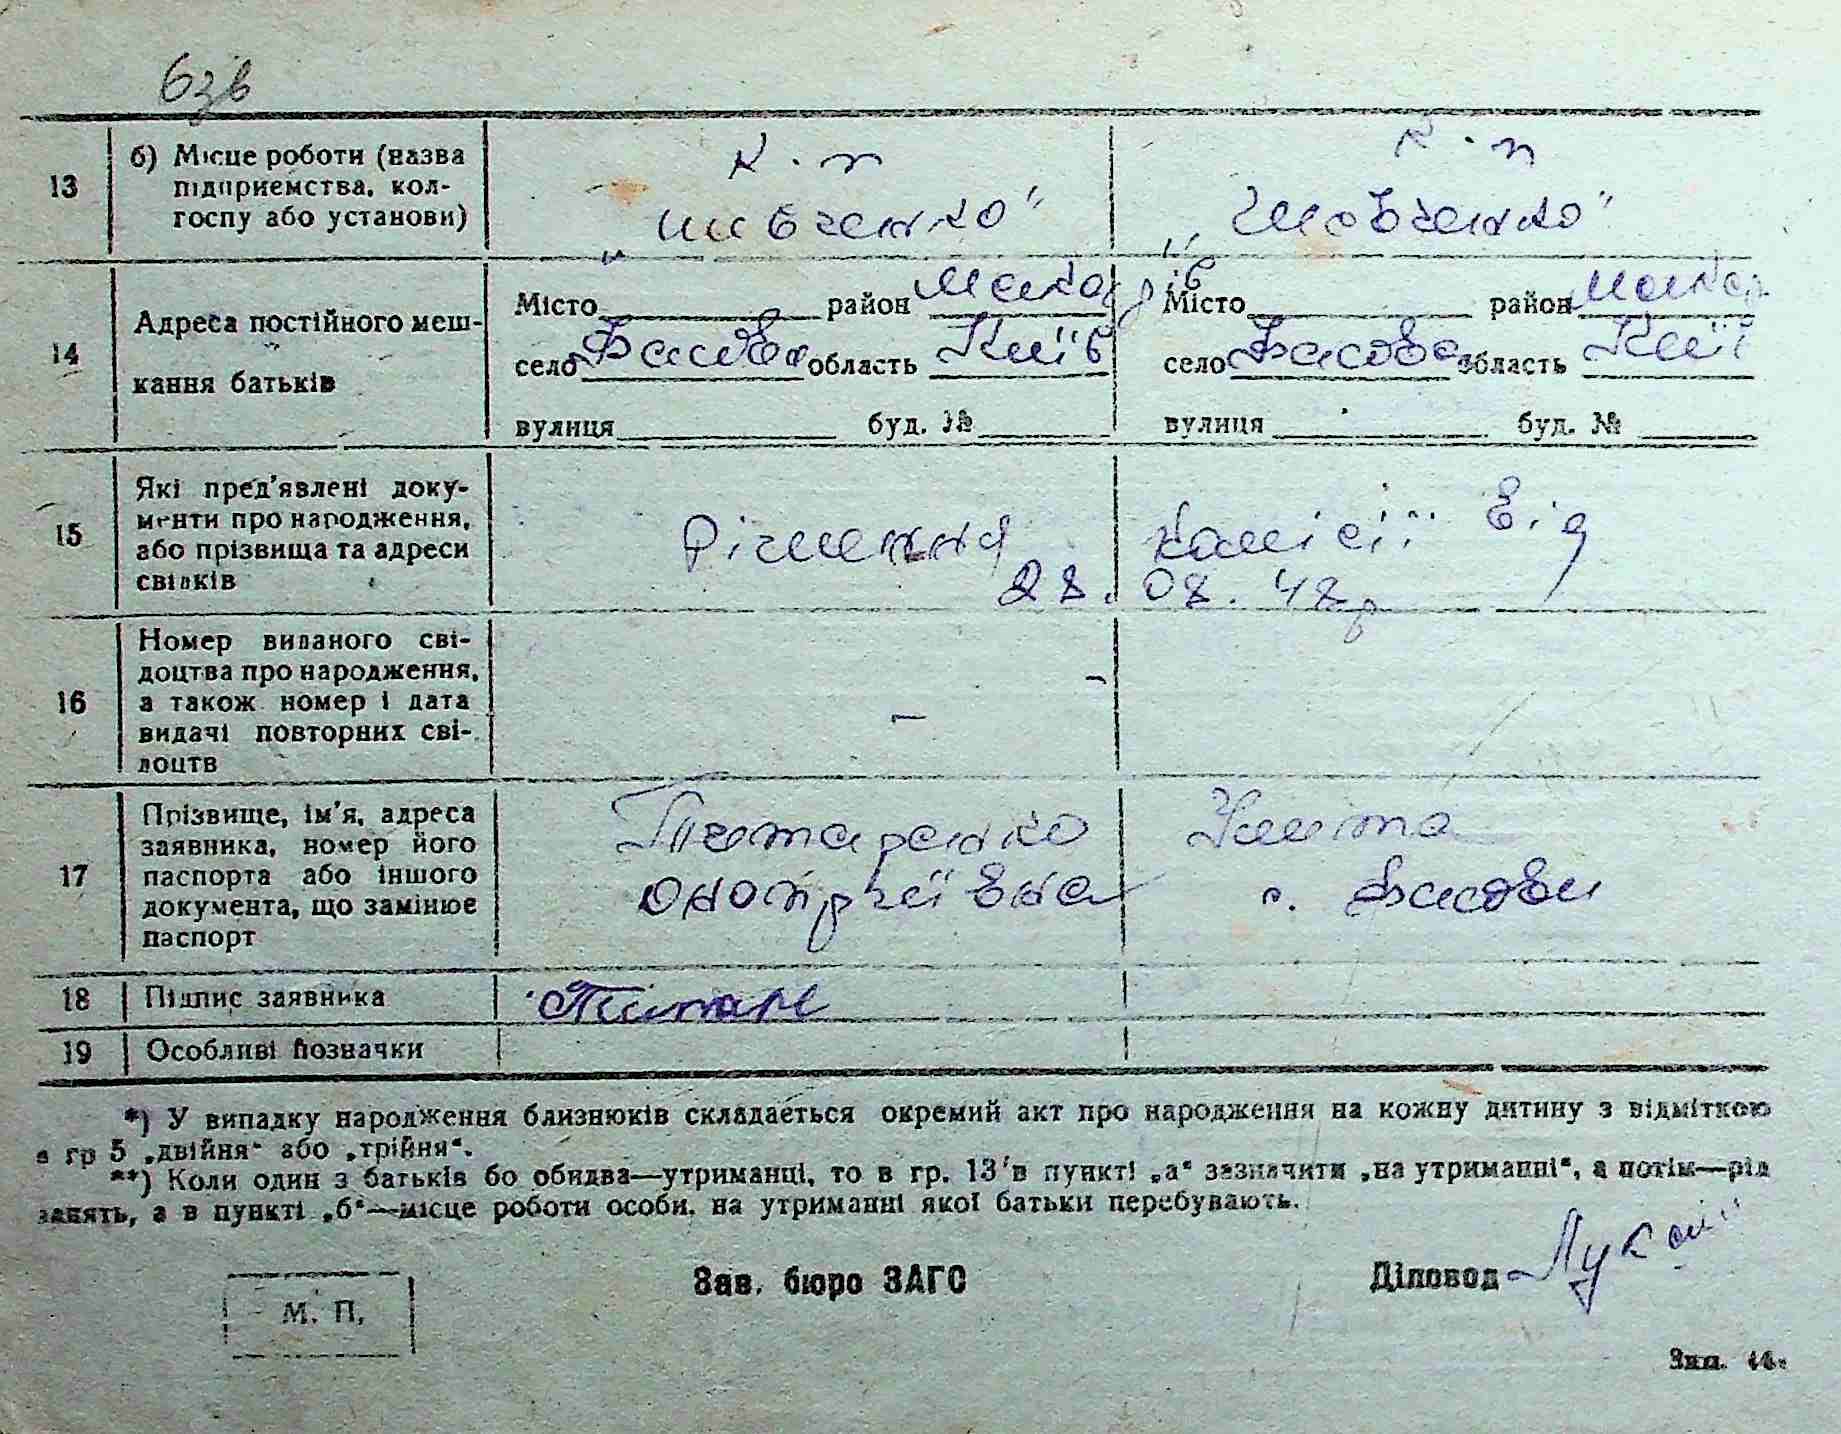 6зв
13 б) Місце роботи (назва підприємства, колгоспу або установи)
к-п к-п
„Шевченко" „Шевченко"
14 Адреса постійного мешкання батьків
Місто район Макарів Місто район Макар
село Фасова область Київ село Фасова область Київ
вулиця буд. № вулиця буд. №
15 Які пред'явлені документи про народження, або прізвища та адреси свідків
Рішення комісії від
28.08.48р
16 Номер виданого свідоцтва про народження, а також номер і дата видачі повторних свідоцтв
–
17 Прізвище, ім'я, адреса заявника, номер його паспорта або іншого документа, що замінює паспорт
Онопріївна с. Фасова
18 Підпис заявника
19 Особливі позначки
*) У випадку народження близнюків складається окремий акт про народження на кожну дитину з відміткою
в гр 5 „двійня" або „трійня".
**) Коли один з батьків бо обидва—утриманці, то в гр. 13 в пункті „а" зазначити „на утриманні", а потім—рід
занять, а в пункті „б"—місце роботи особи, на утриманні якої батьки перебувають.
М. П.
Зав. бюро ЗАГС
Діловод